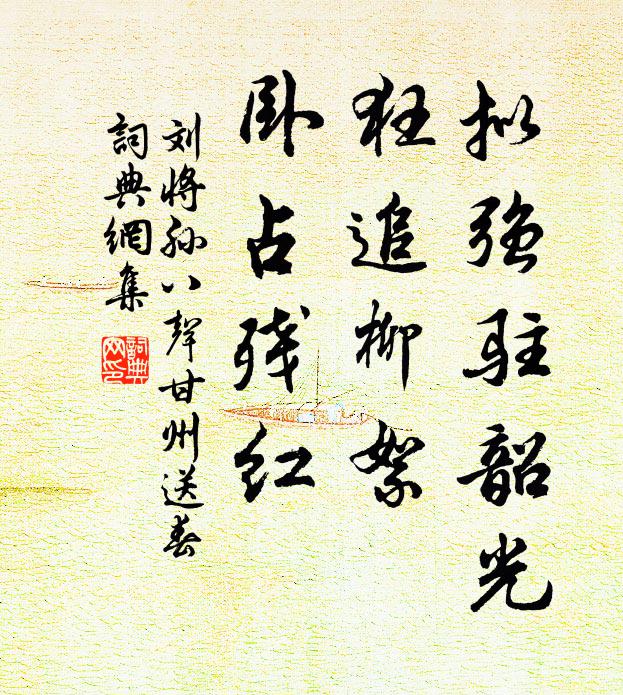 拟强驻韶光
狂追柳絮
卧占残红
刘将孙八聲甘州送春
詞典網集
詞典網印